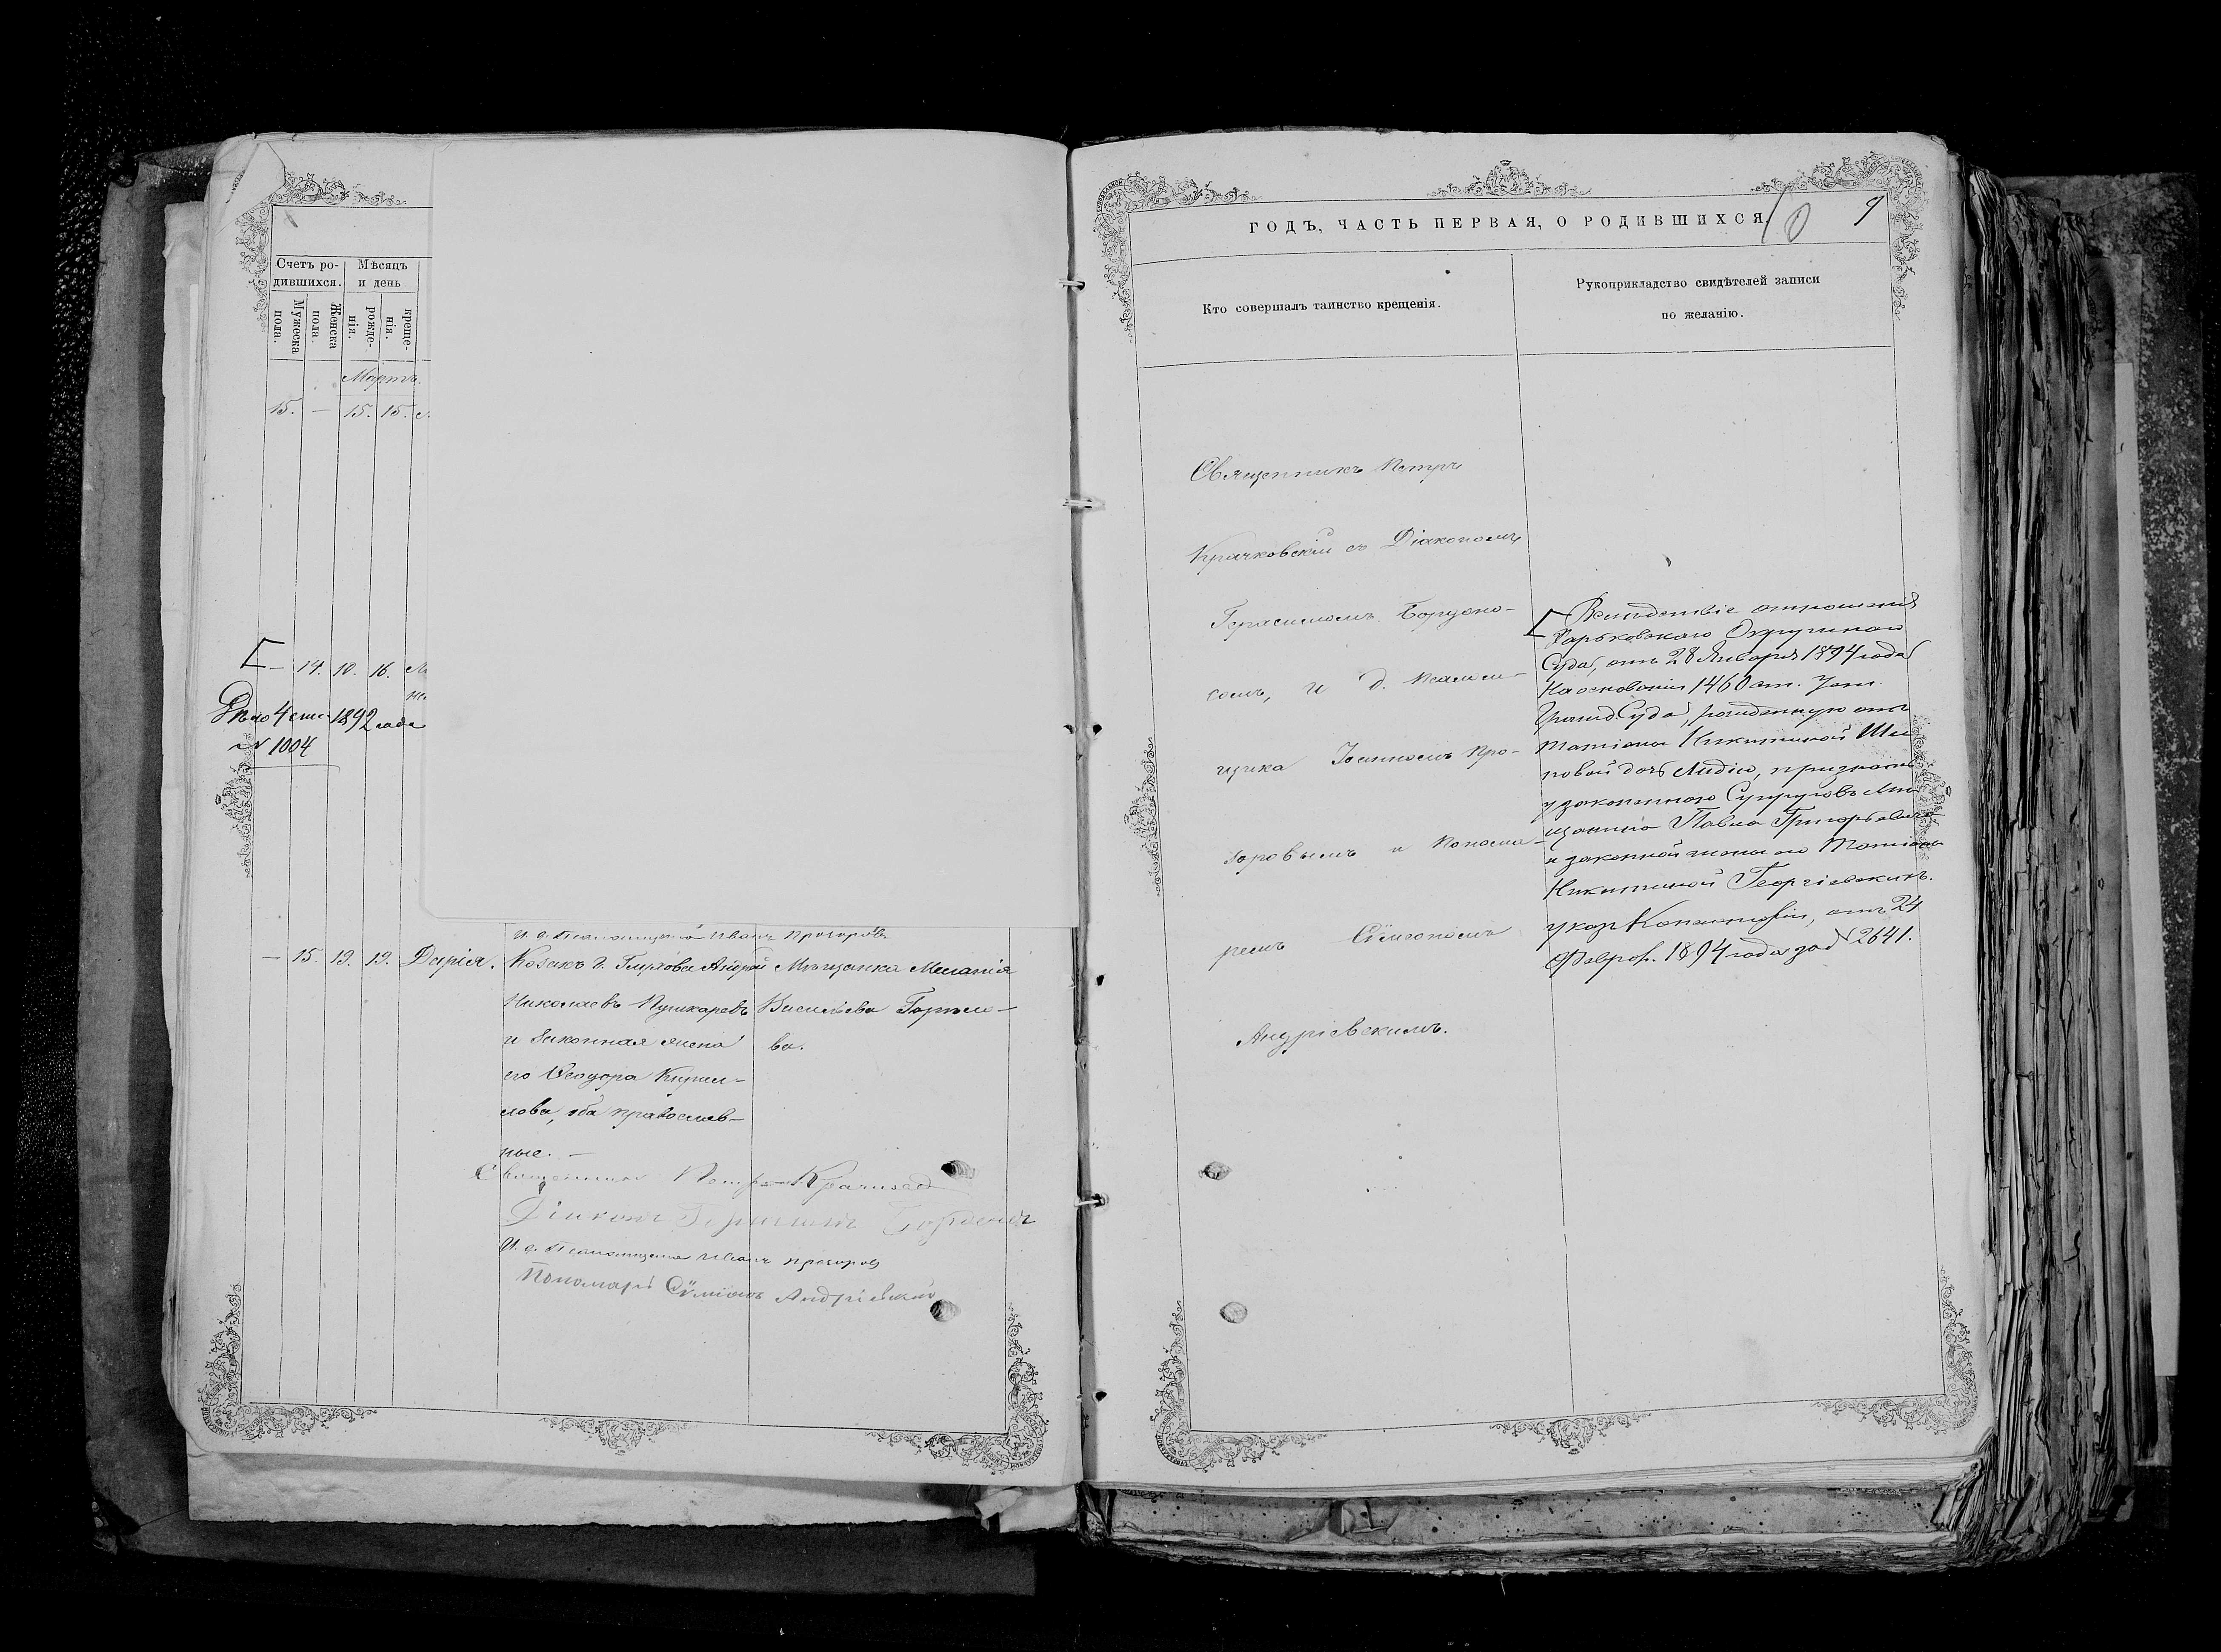 Счетъ ро-
дившихся.
Мѣсяцъ
и день
Мужеска
пола.
Женска
пола.
рожде-
нія.
креще-
нія.
Мартъ.
15. — 15. 15.
— 14. 10. 16.
Дѣло 4 1892 года
№ 1004
И. д. Псаломщика Иванъ Прохоровъ
— 15. 19. 19. Дарія. Козакъ г. Глухова Андрей
Николаевъ Пушкаревъ
и законная жена
его Ѳеодора Кирил-
лова, оба православ-
ные. —
Мѣщанка Меланія
Васильева Горѣло-
ва.
Священникъ Петръ Крачковскій
Діаконъ Герасимъ
И. д. Псаломщика Иванъ Прохоровъ
Пономарь Сѵмеонъ Андріевскій
ГОДЪ, ЧАСТЬ ПЕРВАЯ, О РОДИВШИХСЯ.
10 9
Кто совершалъ таинство крещенія.
Рукоприкладство свидѣтелей записи
по желанію.
Священникъ Петръ
Крачковскій съ Діакономъ
Герасимомъ
и д. Псалом-
щика Іоанномъ Про-
хоровымъ и Понома-
ремъ Сѵмеономъ
Андріевскимъ.
Вслѣдствіе отношенія
Харьковскаго Окружнаго
Суда, отъ 28 Января 1894 года
На основаніи 1460 ст. Уст.
Гражд. Суда, рожденную отъ
Татіаны Никитиной
дочь Лидію, признать
узаконенною Супруговъ Мѣ-
щанина Павла Григорьевича
и законной жены его Татіаны
Никитиной Георгіевскихъ.
указ Консисторіи, отъ 24
Феврал. 1894 года за № 2641.